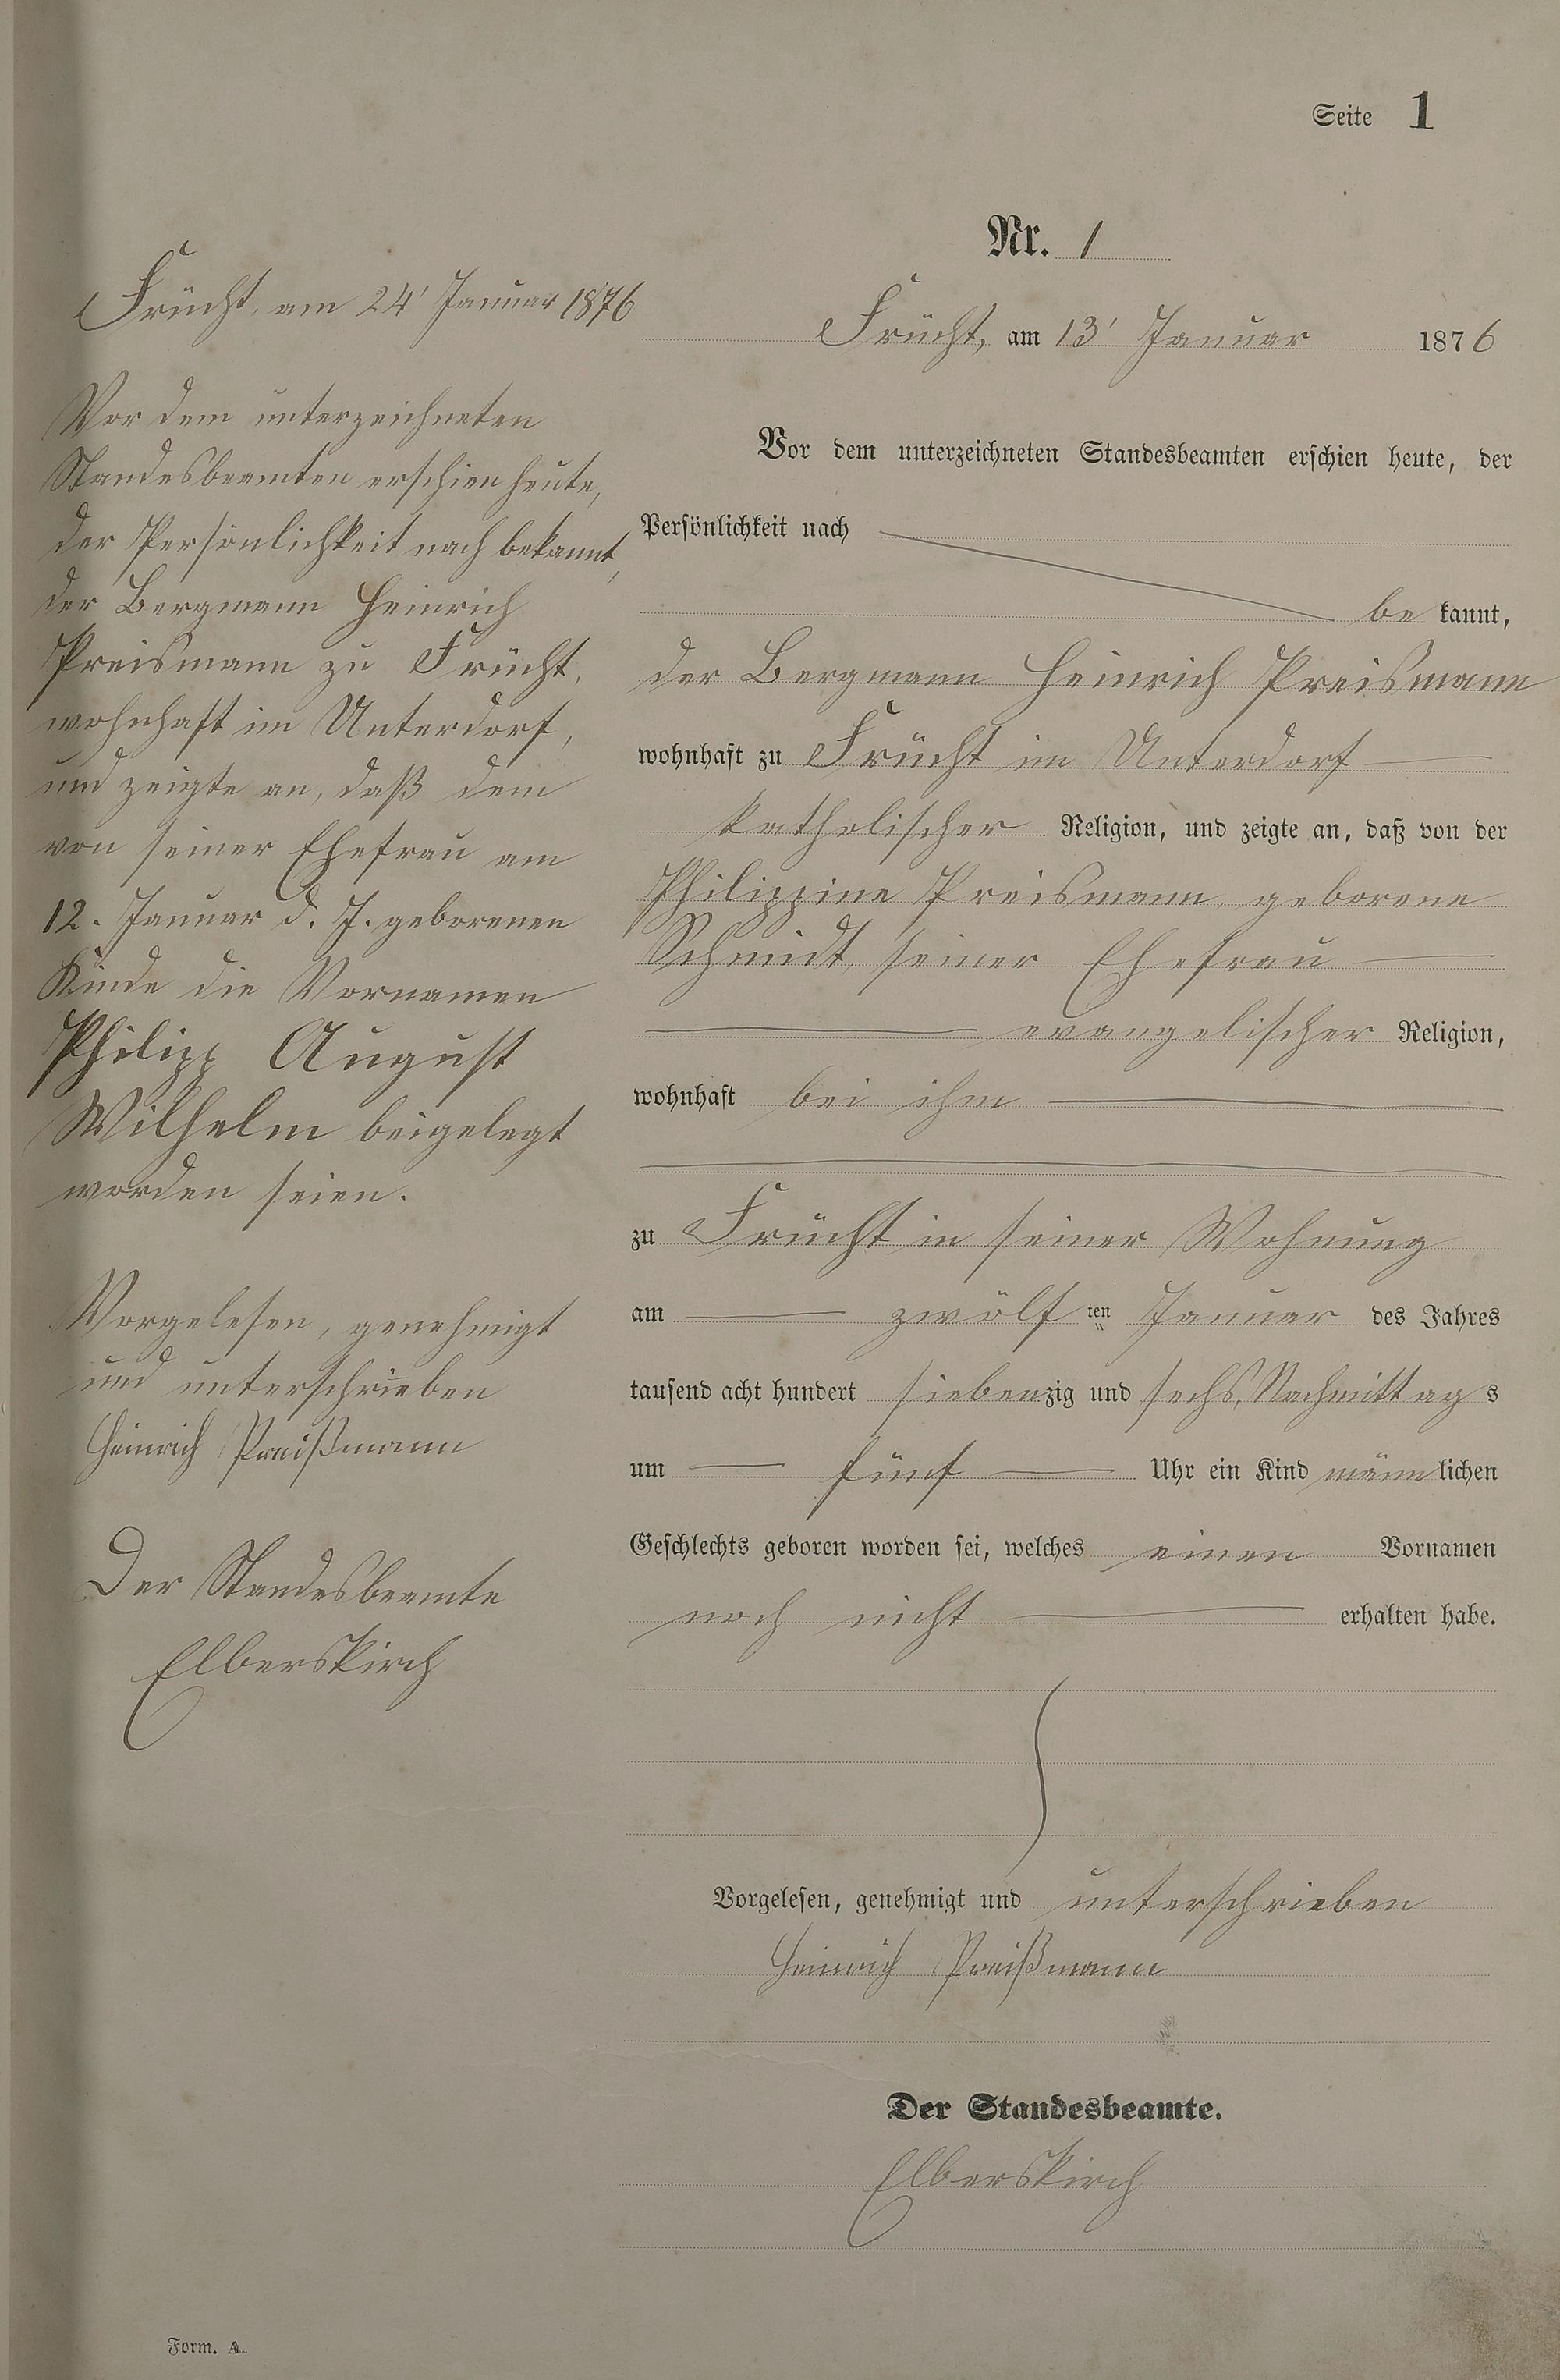 Seite 1
Nr. 1
Frücht, am 24' Januar 1876
Vor dem unterzeichneten
Standesbeamten erschien heute,
der Persönlichkeit nach bekannt,
der Bergmann Heinrich
Preismann zu Frücht,
wohnhaft im Unterdorf,
und zeigte an, daß dem
von seiner Ehefrau am
12. Januar d. J. geborenen
Kinde die Vornamen
Philipp August
Wilhelm beigelegt
worden seien.
Vorgelesen, genehmigt
und unterschrieben
Heinrich Preißmann
Der Standesbeamte
Elberskirch
Frücht, am 13' Januar 1876
Vor dem unterzeichneten Standesbeamten erschien heute, der
Persönlichkeit nach
bekannt,
der Bergmann Heinrich Preismann
wohnhaft zu Frücht im Unterdorf
katholischer Religion, und zeigte an, daß von der
Philippine Preismann, geborene
Schmidt, seiner Ehefrau
evangelischer Religion,
wohnhaft bei ihm
zu Frücht in seiner Wohnung
am zwölf ten Januar des Jahres
tausend acht hundert siebenzig und sechs, Nachmittags
um fünf Uhr ein Kind männlichen
Geschlechts geboren worden sei, welches einen Vornamen
noch nicht erhalten habe.
Vorgelesen, genehmigt und unterschrieben
Heinrich Preißmann
Der Standesbeamte.
Elberskirch
Form. A.